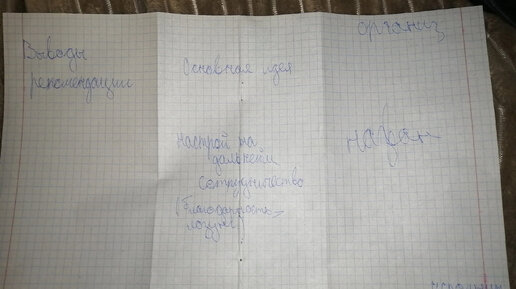 Выводы
рекомендации
Основная идея
настрой на
дальнейш
сотрудничество
(благодарность
лозунг)
организ